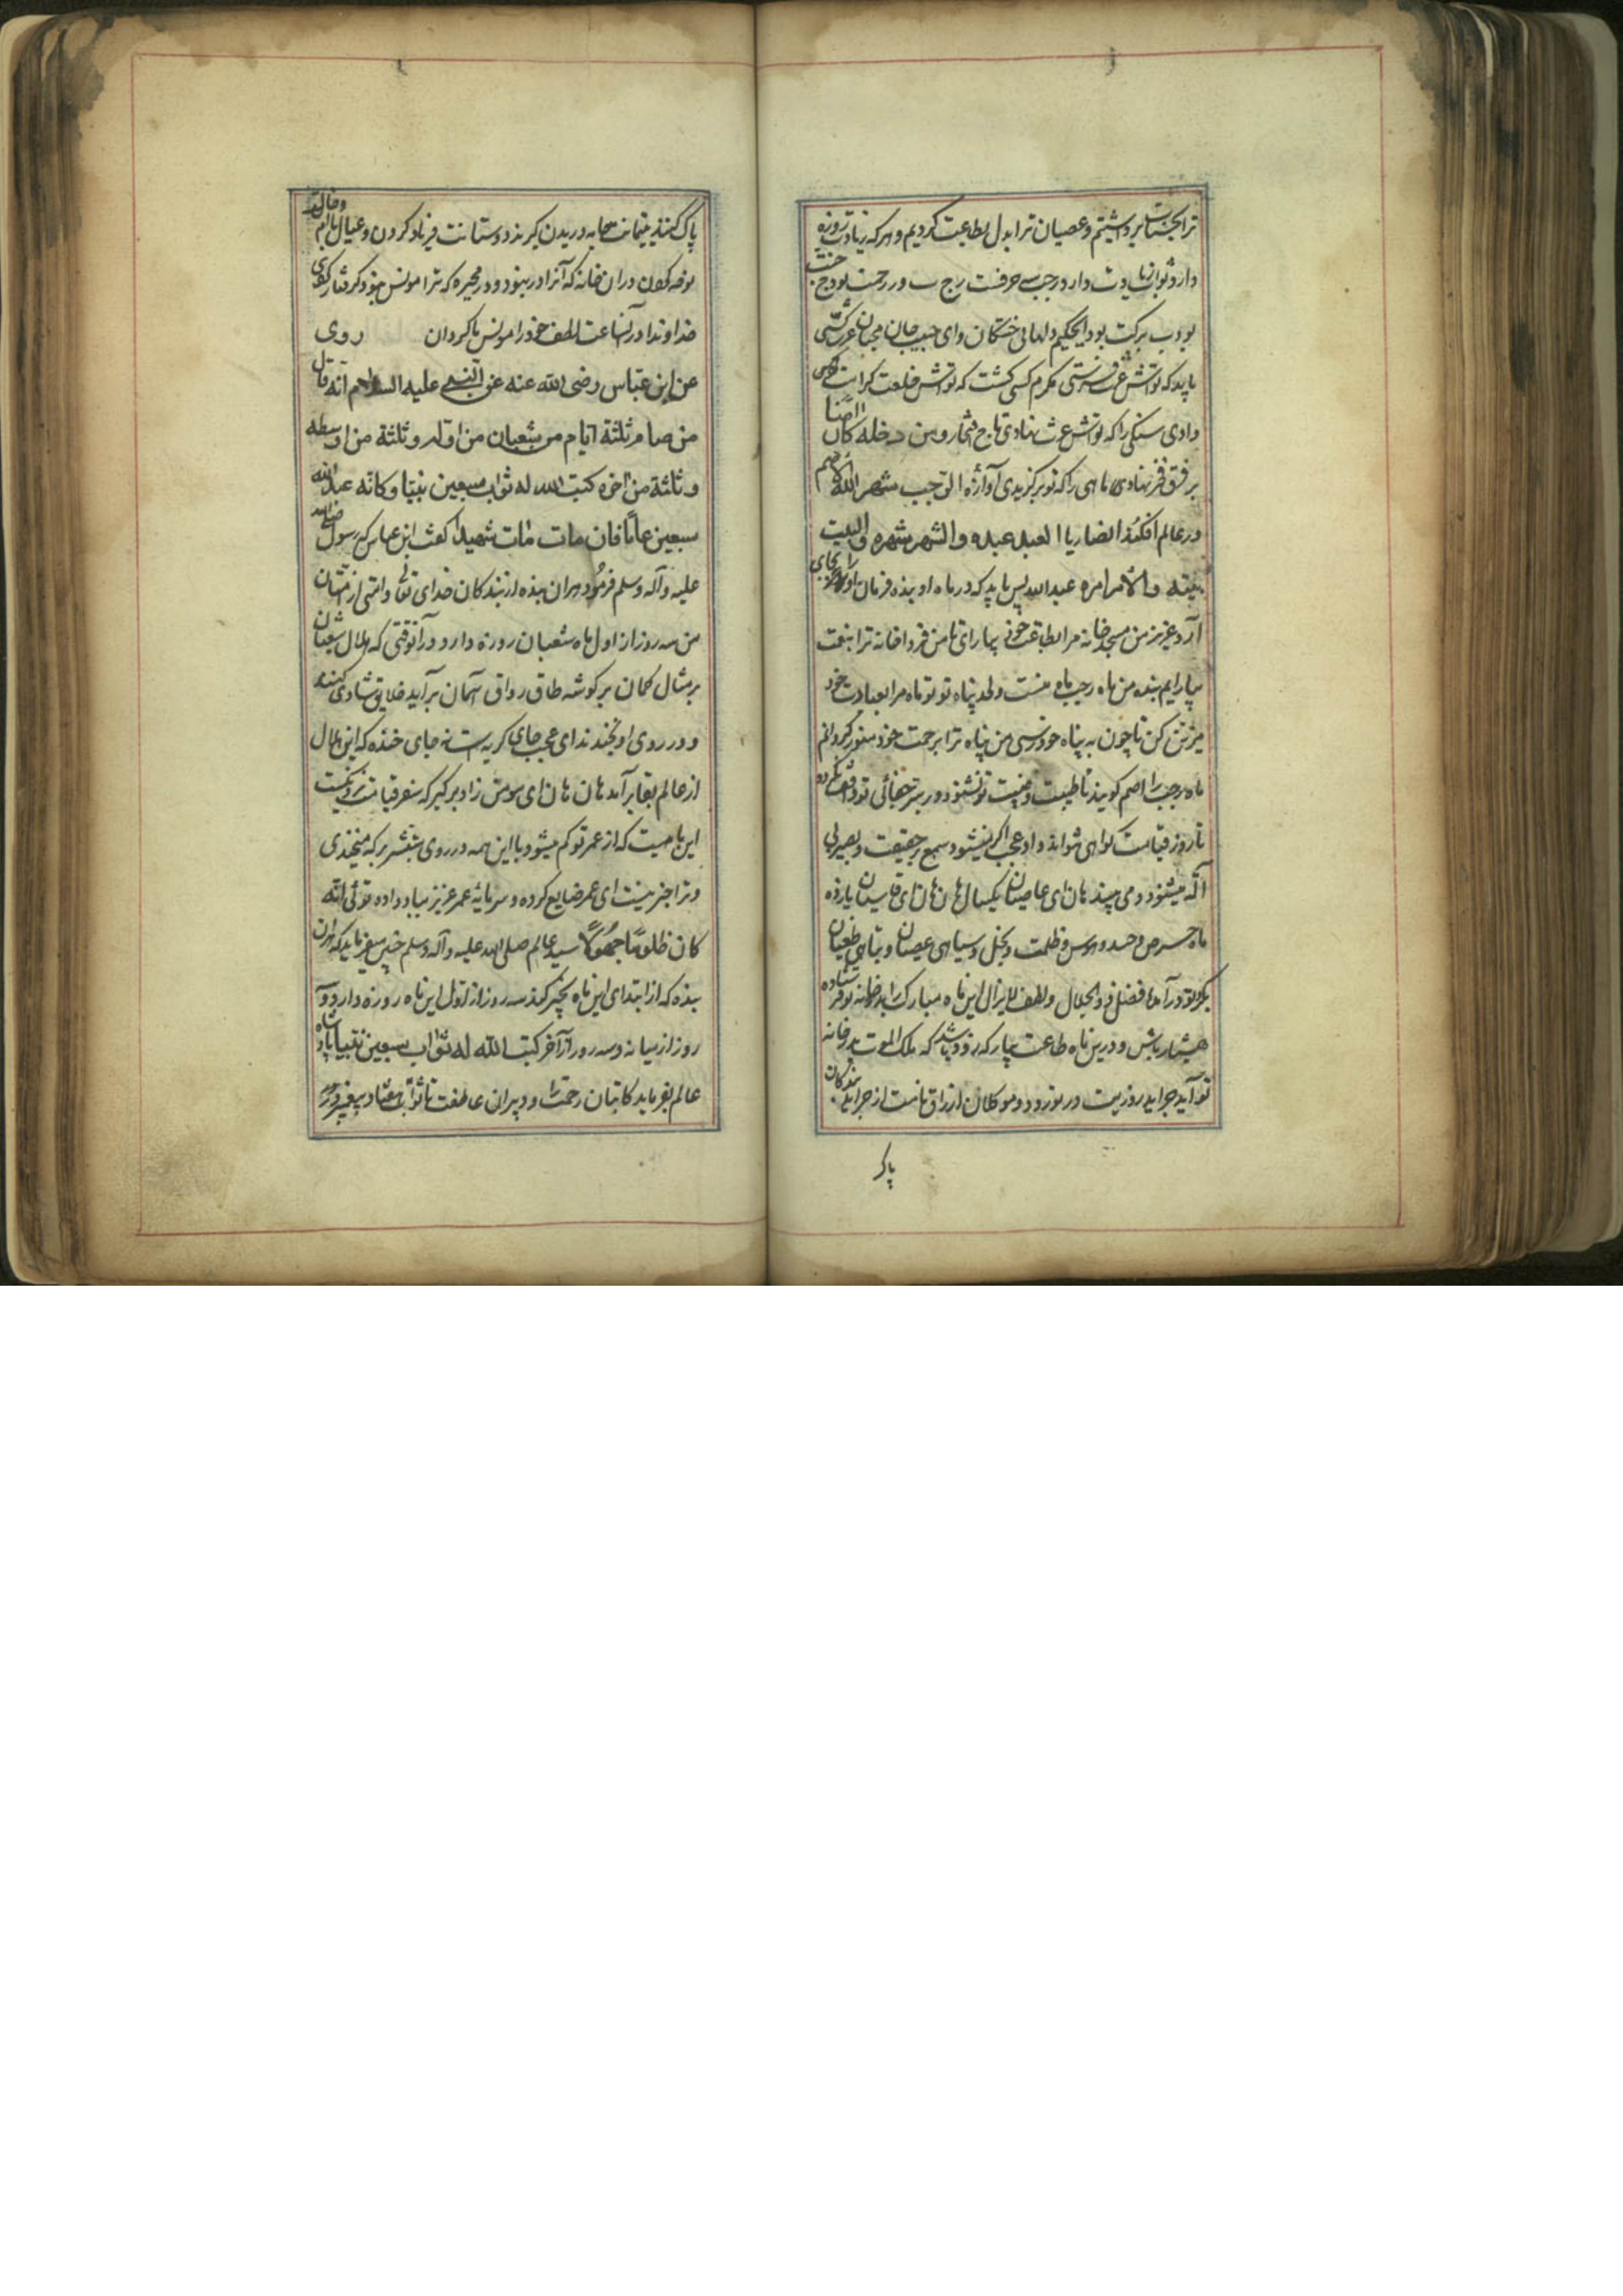 ترا بحسنات برداشتیم و عصیان ترا بدل بطاعت کردیم و هر که زیادت روزه
دارد ثواب زیادت دارد رجب سه حرفست ر ج ب ر رحمت بود ج جنت
بود ب برکت بود ای حکیم دلهای خستکان و ای حبیب جان محبان
باید که تواش فرستی مکرم کسی کشت که تواش خلعت کرامت
دادی سنکی را که تواش عزت نهادی تاج و من دخله کان امنا
بر فرق نهادی ماهی را که تو برکزیدی آوازه الرجب شهر الله الاصم
در عالم افکند العبد عبده والشهر شهره والبیت
بیته والامر امره عبد الله پس باید که در ماه او بنده فرمان او را بجای
آرد عزیز من مسجد خانه مرا بطاعت خود بیارای تا من فردا خانه ترا بنعمت
بیارایم بنده من ماه رجب ماه منست و لحد پناه تو تو ماه مرا بعبادت خود
مزین کن تا چون به پناه خود رسی من پناه ترا برحمت خود منور کردانم
ماه رجب را اصم کویند تا و غیبت تو نشنود و بر سر تو واقف نکردد
تا روز قیامت کواهی نتواند داد عجب اکر نمیشنود سمع بحقیقت و بصیر بی
آله میشنود و می بیند هان ای عاصیان یکسال هان هان ای یازده
ماه حرص و حسد و هوس و ظلمت و بخل و سیاهی عصیان و تباهی طغیان
تو درآمد ما فضل ذو الجلال و لطف لایزال این ماه مبارک را بدر خانه تو فرستاده
هشیار باش و درین ماه طاعت بیار که زود باشد که ملک الموت بدر خانه
تو آید جراید روزیت در نوردد و موکلان ارزاق نامت از جراید بندکان
پاک
پاک کنند یتیمانت جامه دریدن کیرند دوستانت فریاد کردن و عیال و اطفالت
نوحه کردن در آن خانه که آنرا در نبود و در حجره که ترا مونس نبود
خداوندا در آنساعت لطف خود را مونس ما کردان روی
عن ابن عباس رضی الله عنه عن النبی علیه السلام انه قال
من صام ثلثة ایام من شعبان من اوله و ثلثة من اوسطه
و ثلثة من آخره کتب الله له ثواب سبعین نبیا و کانه عبد الله
سبعین عاما فان مات مات شهیدا کفت ابن عباس که رسول صلی الله
علیه و آله و سلم فرمود هران بنده از بندکان خدای تعالی و امتی از امتان
من سه روز از اول ماه شعبان روزه دارد و در آنوقتی که هلال شعبان
بر مثال کمان بر کوشه طاق رواق آسمان برآید خلایق شادی کنند
و در روی او بخندند ای عجب جای کریه است نه جای خنده که این هلال
از عالم بقا برآمد هان هان ای مومن زاد برکیر که سفر قیامت نزدیکست
این ماهیست که از عمر تو کم میشود با این همه در روی شمشیر برکه میخندی
و ترا خبر نیست ای عمر ضایع کرده و سرمایه عمر عزیز بباد داده توئی انه
کان ظلوما جهولا سید عالم صلی الله علیه و آله و سلم چنین میفرماید که هران
بنده که از ابتدای این ماه سه روز از اول این ماه روزه دارد و سه
روز از میانه و سه روز از آخر کتب الله له ثواب سبعین نبیا پادشاه
عالم بفرماید کاتبان رحمت را و دبیران عاطفت را تا ثواب هفتاد پیغمبر در